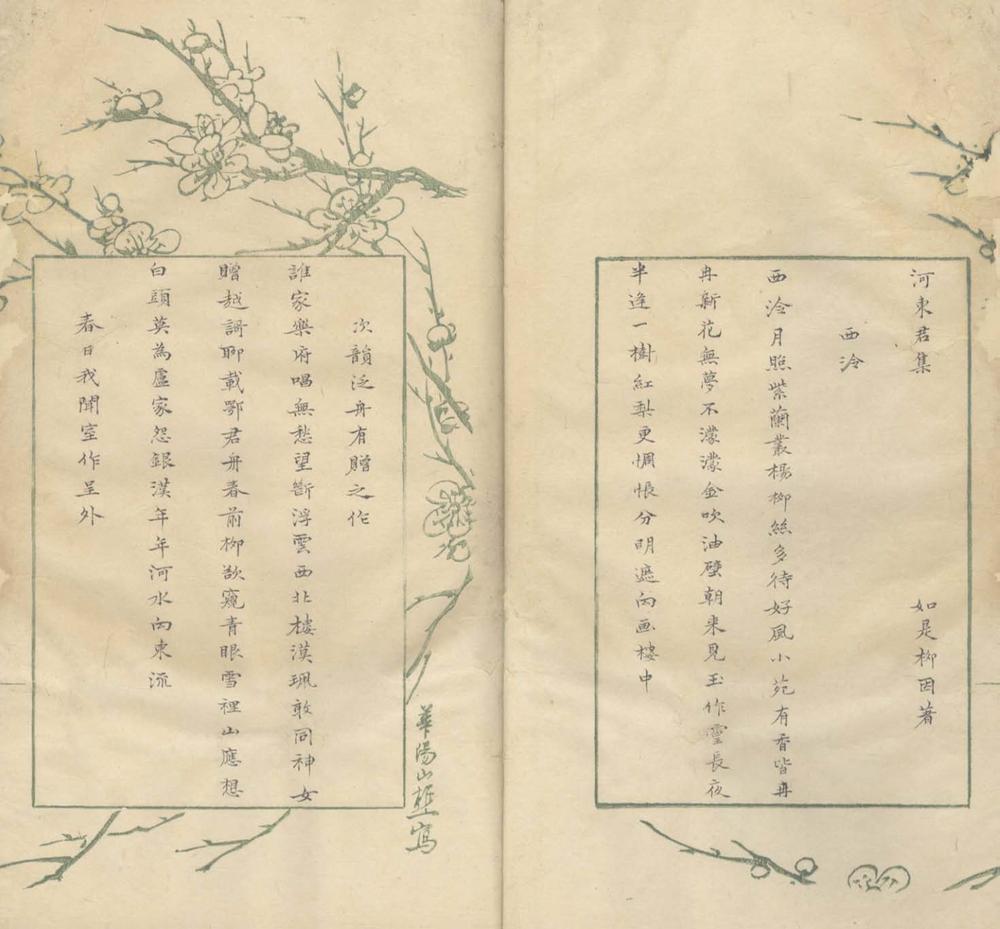 河東君集
如是柳因著
西泠
西泠月照紫蘭叢楊柳絲多待好風小苑有香皆冉
冉新花無夢不濛濛金吹油壁朝來見玉作靈長夜
半逢一樹紅梨更惆悵分明遮向画樓中
次韻泛舟有贈之作
誰家樂府唱無愁望斷浮雲西北樓漢珮敢同神女
贈越謌聊載鄂君舟春前柳欲窺青眼雪裡山應想
白頭莫為盧家怨銀漢年年河水向東流
春日我聞室作呈外
華陽山樵寫